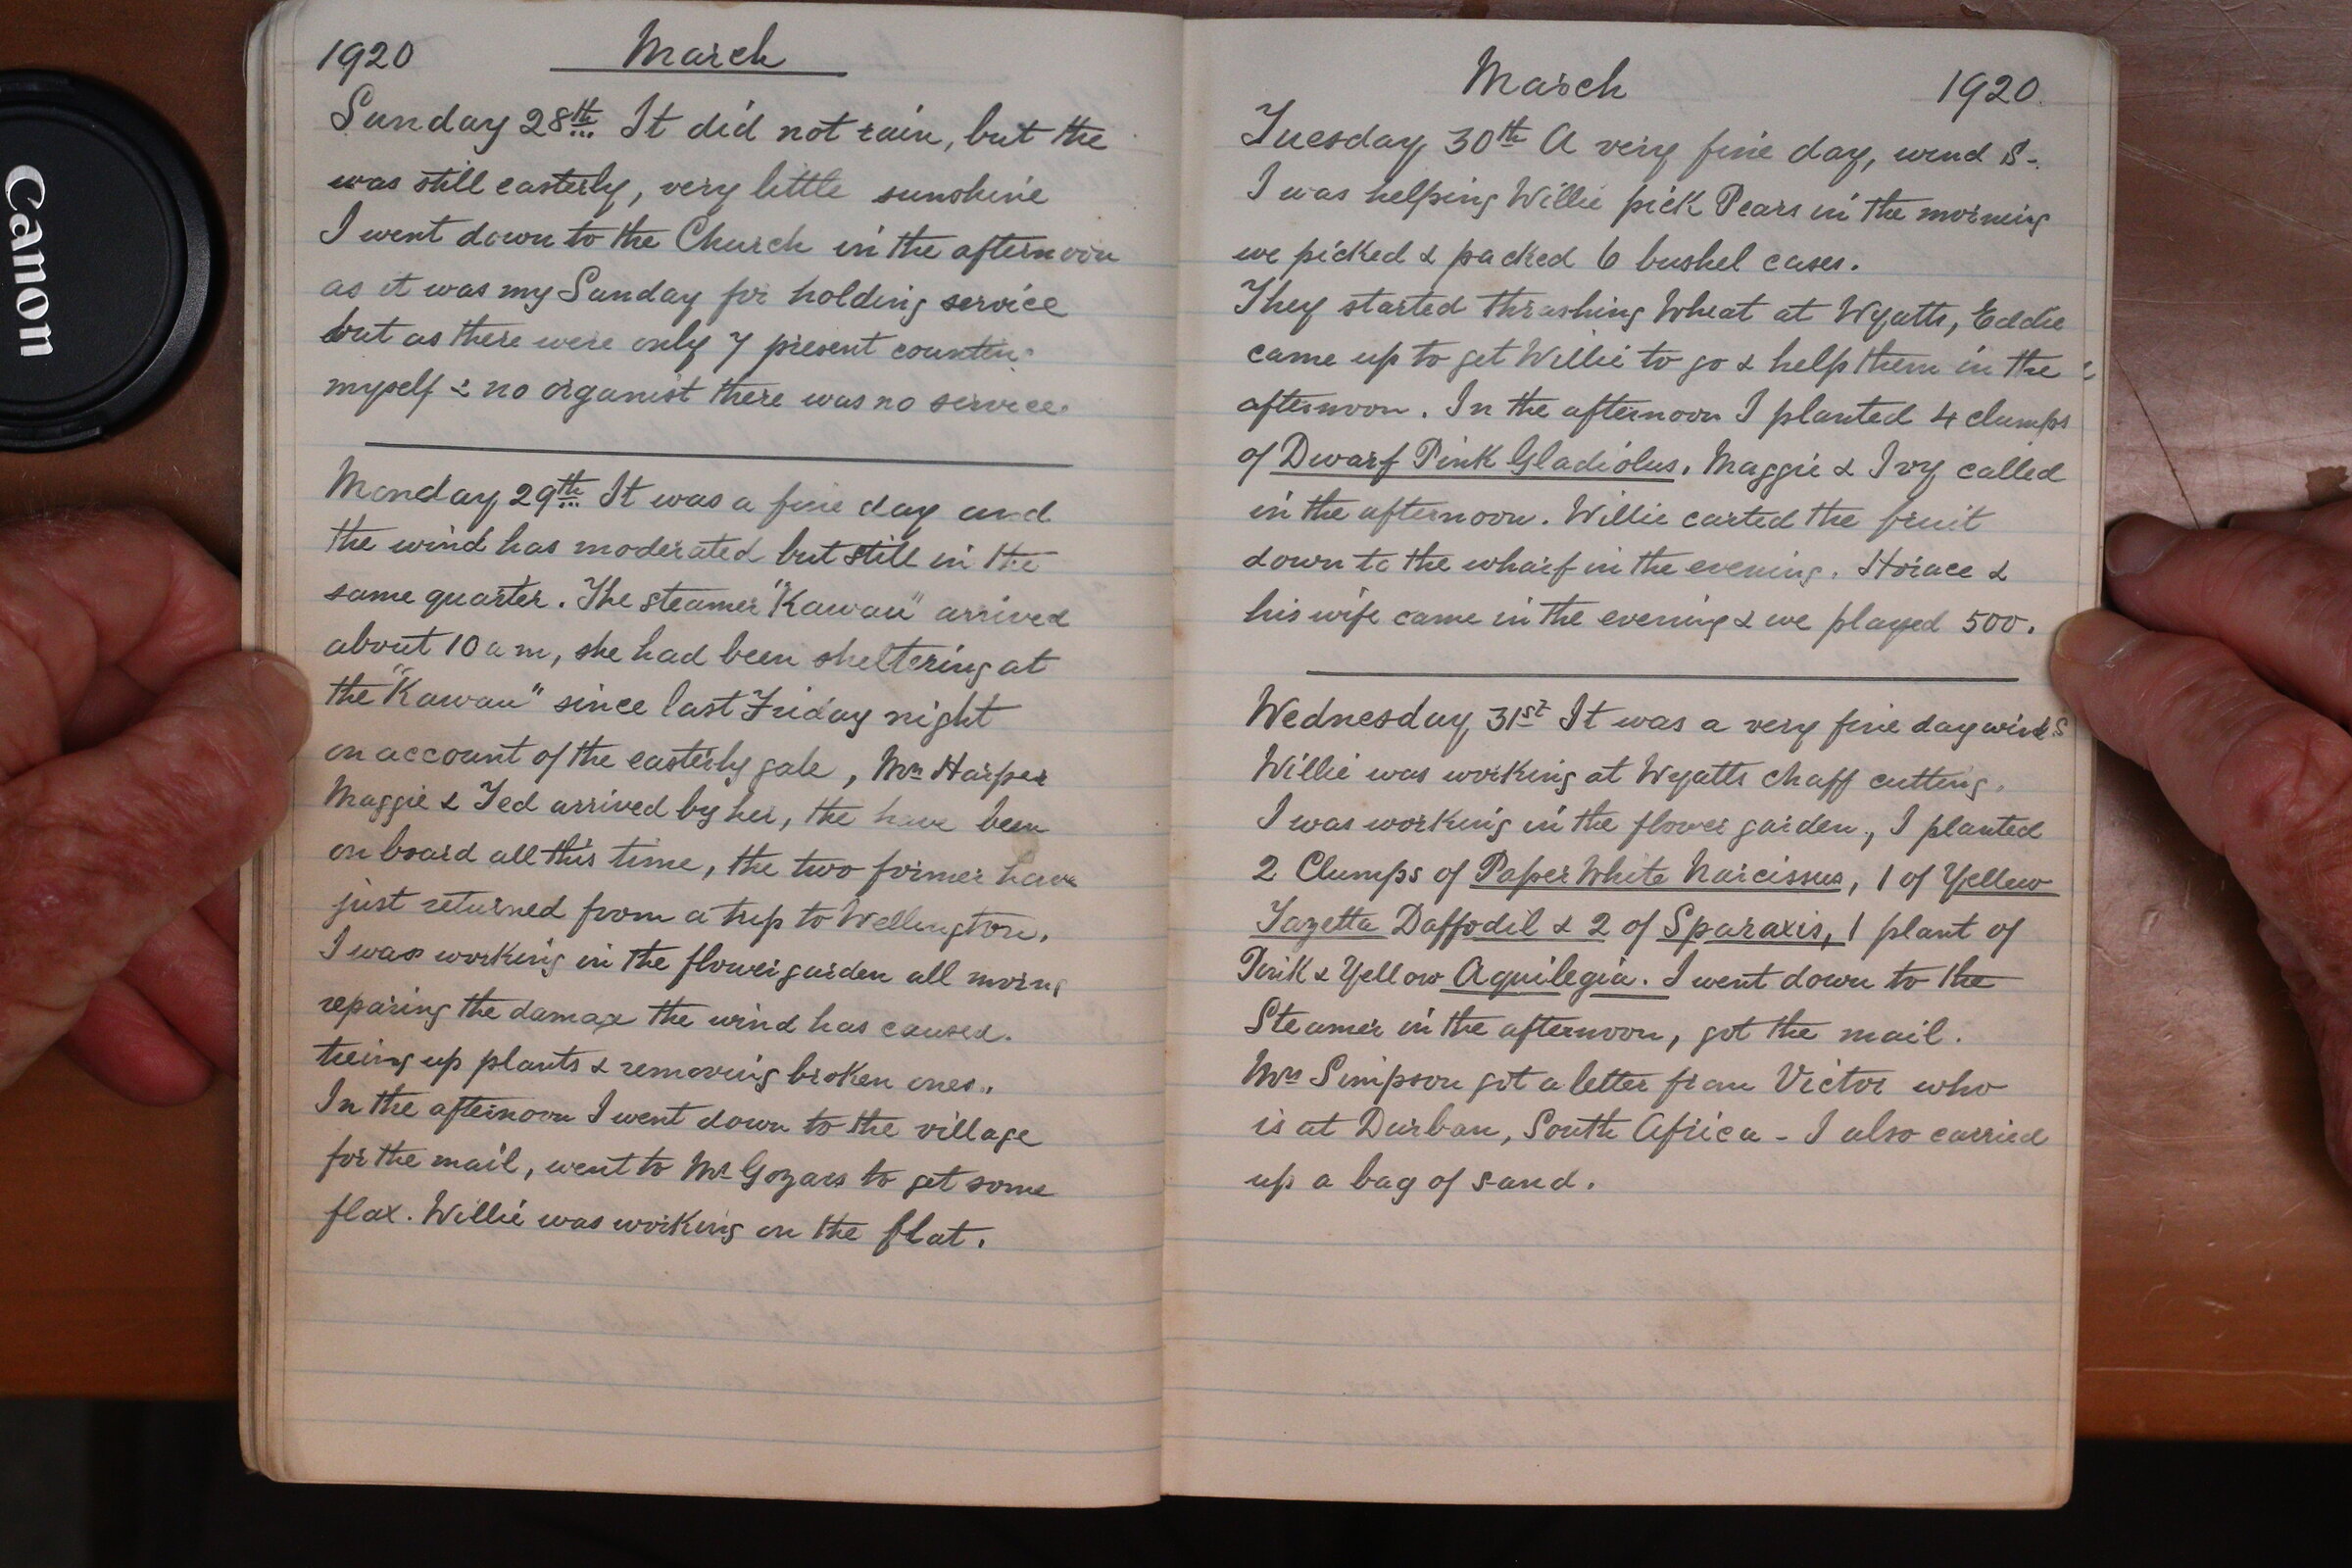 Canon
1920 March
Sunday 28th It did not rain, but the
was still easterly, very little sunshine
I went down to the Church in the afternoon
as it was my Sunday for holding service
but as there were only 7 present countin
myself & no organist there was no service.
Monday 29th It was a fine day and
the wind has moderated but still in the
same quarter. The steamer "Kawau" arrived
about 10 a m, she had been sheltering at
the "Kawau" since last Friday night
on account of the easterly gale, Mrs Harper
Maggie & Ted arrived by her, the have been
on board all this time, the two former have
just returned from a trip to Wellington.
I was working in the flower garden all morng
reparing the damage the wind has caused.
tieing up plants & removing broken ones.
In the afternoon I went down to the village
for the mail, went to Mr Gozars to get some
flax. Willie was working on the flat.
March 1920.
Tuesday 30th A very fine day, wind S-.
I was helping Willie pick Pears in the morning
we picked & packed 6 bushel cases.
They started thrashing Wheat at Wyatts, Eddie
came up to get Willie to go & help them in the
afternoon. In the afternoon I planted 4 clumps
of Dwarf Pink Gladiolus. Maggie & Ivy called
in the afternoon. Willie carted the fruit
down to the wharf in the evening. Horace &
his wife came in the evening & we played 500.
Wednesday 31st It was a very fine day wind S
Willie was working at Wyatts chaff cutting.
I was working in the flower garden, I planted
2 Clumps of Paper White Narcissus, 1 of Yellow
Tazetta Daffodil & 2 of Sparaxis, 1 plant of
Pink & Yellow Aquilegia. I went down to the
Steamer in the afternoon, got the mail.
Mrs Simpson got a letter from Victor who
is at Durban, South Africa - I also carried
up a bag of sand.